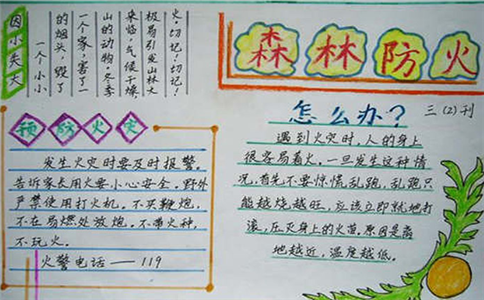 因小失大
一个小小
的烟头,毁了
一个家,害了一
山的动物。冬季
来临,气候干燥
极易引发山林大
火,切记!切记!
森林防火
三(2)刊
预防火灾
发生火灾时要及时报警。
告诉家长用火要小心安全。野外
严禁使用打火机。不买鞭炮,
不在易燃处放炮。不带火种,
不玩火。
火警电话——119
怎么办?
遇到火灾时,人的身上
很容易着火,一旦发生这种情
况,首先不要惊慌乱跑,乱跑只
能越烧越旺,应该立即就地打
滚,压灭身上的火苗,原因是离
地越近,温度越低。